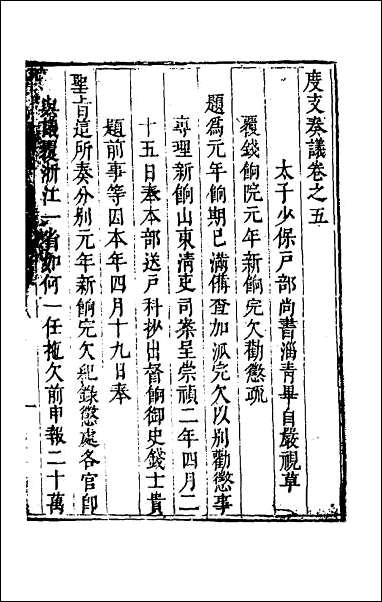 度支奏議卷之五
太子少保戶部尚書淄青畢自嚴視草
覆錢餉院元年新餉完欠勸懲疏
題爲元年餉期已滿備查加派完欠以别勸懲事
專理新餉山東清吏司案呈崇禎二年四月二
十五日奉本部送戶科抄出督餉御史錢士貴
題前事等因本年四月十九日奉
聖旨這所奏分别元年新餉完欠紀錄懲處各官即
與議覆浙江一省如何一任拖欠前申報二十萬